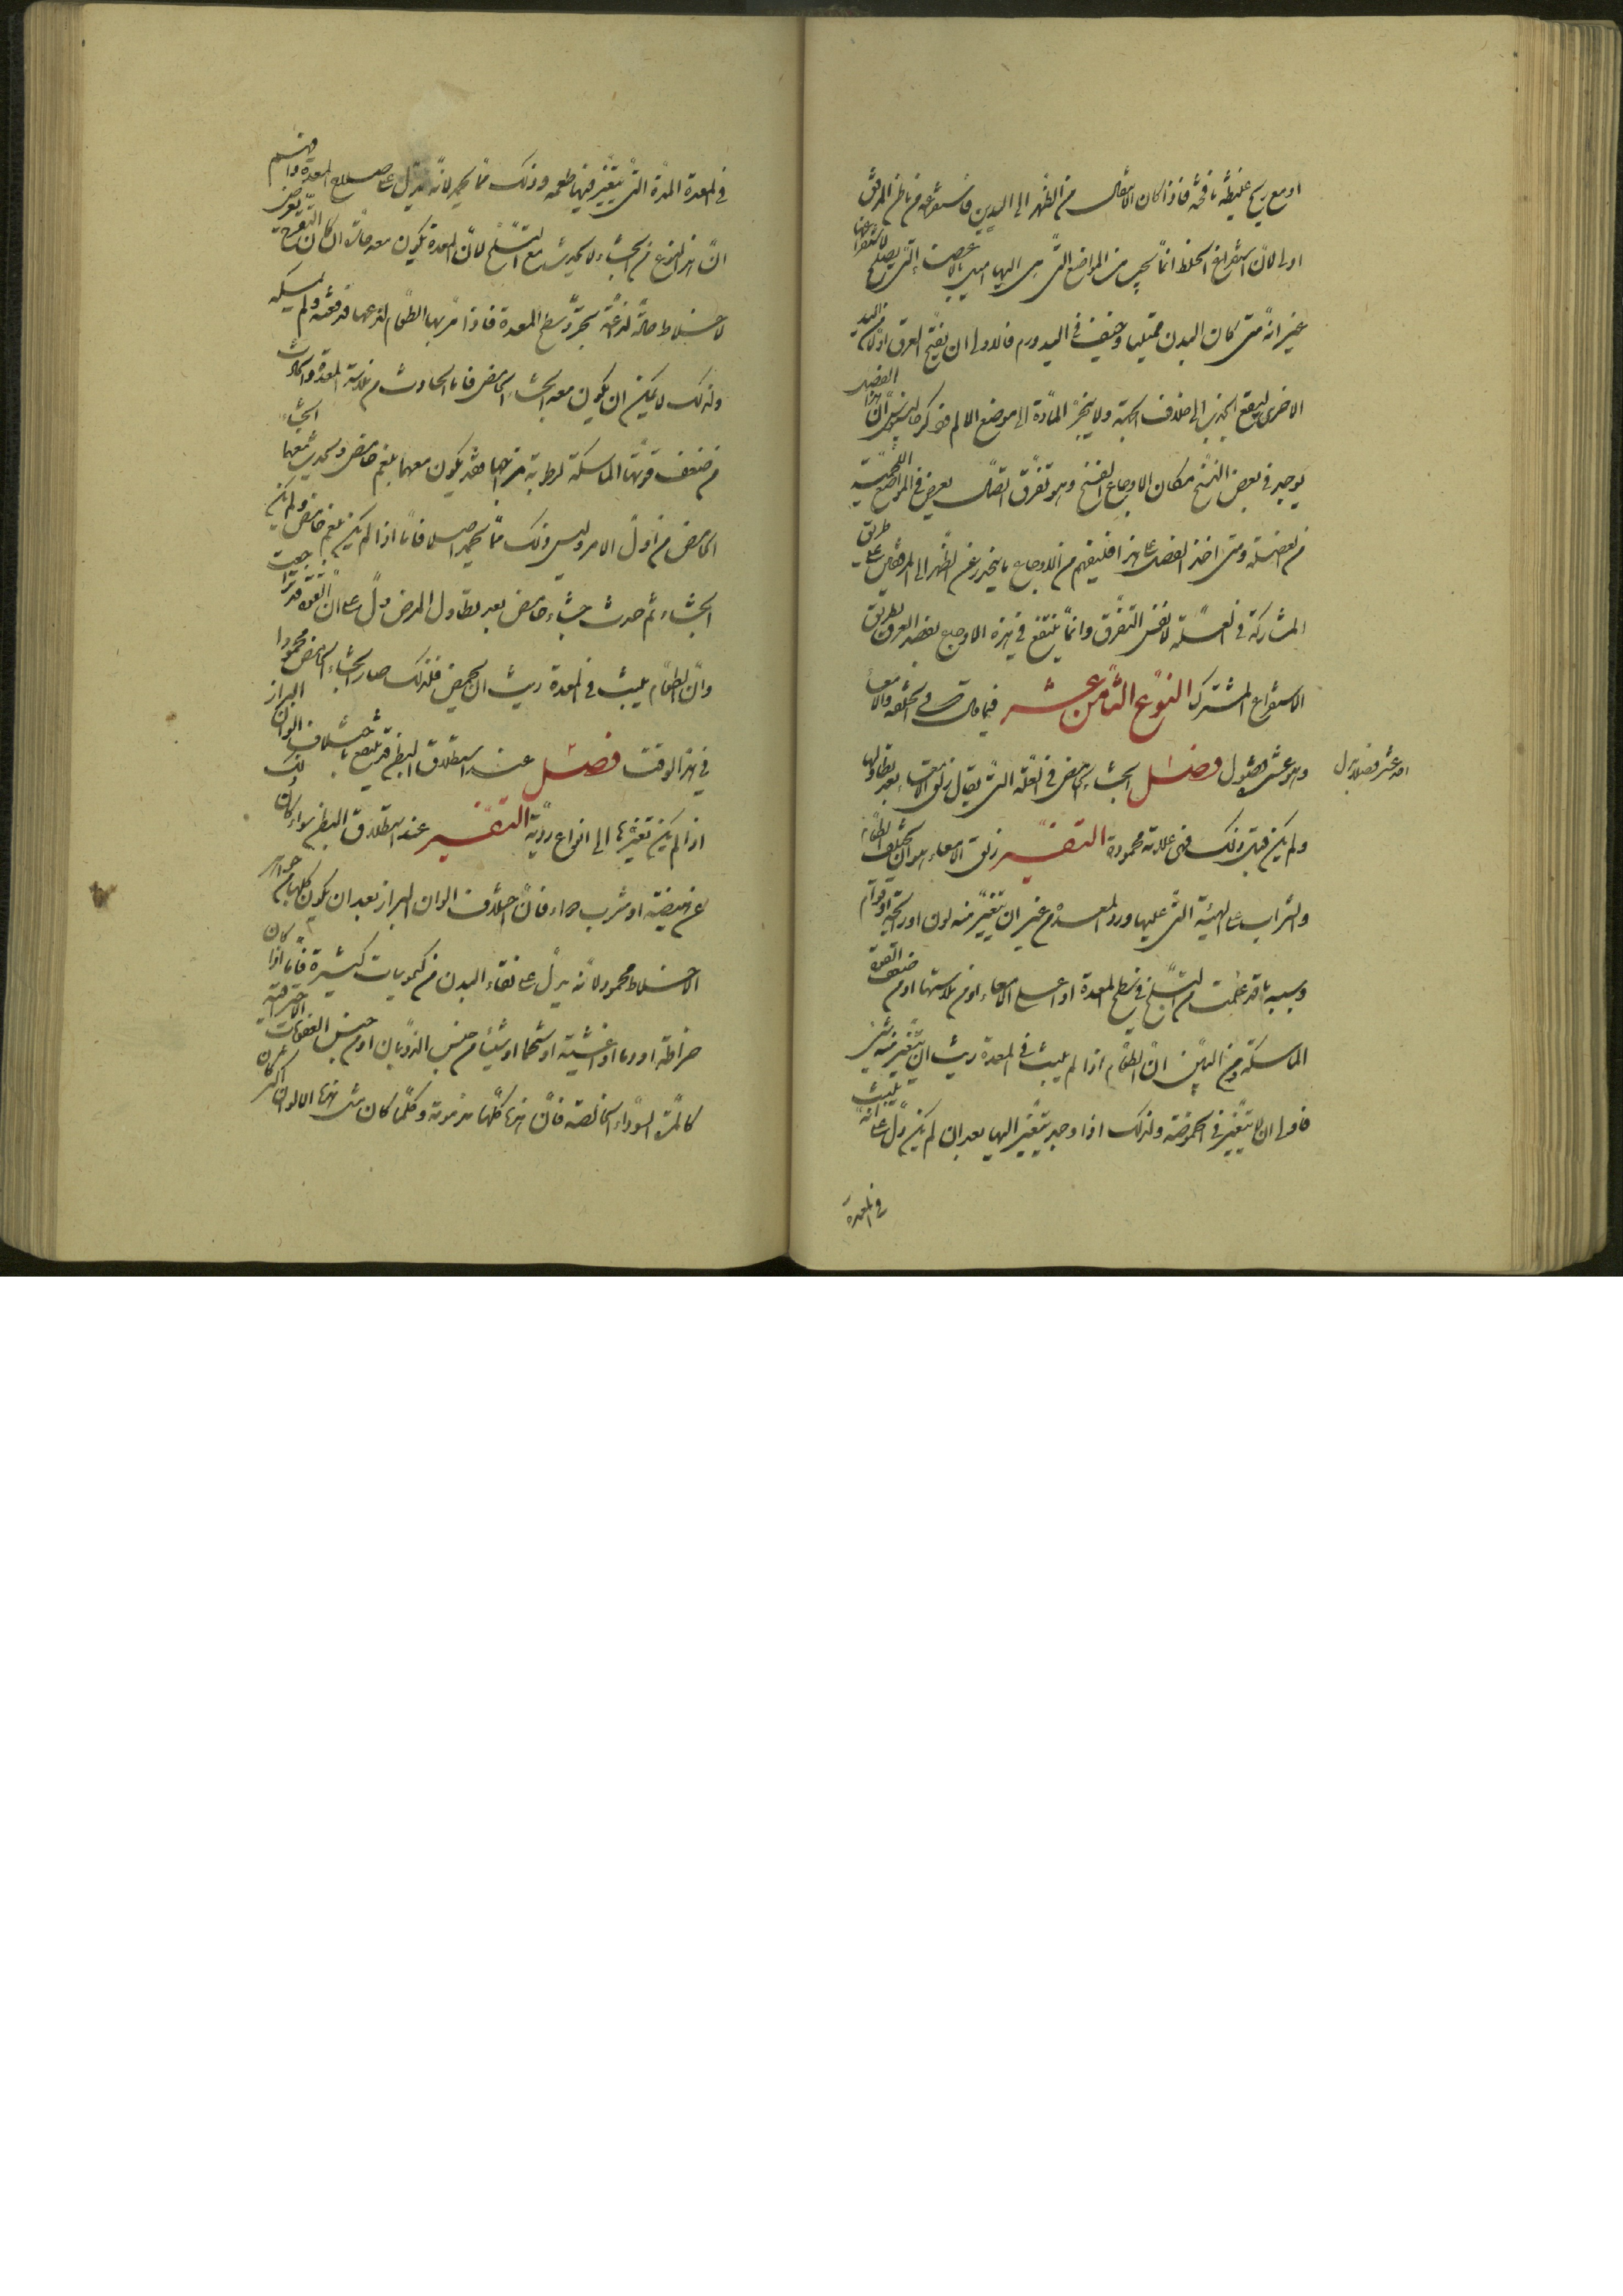 او مع ريح غليظة نافخة فاذا كان الانتقال من الظهر الى اليدين فاستفراغه من باطن المرفق
اولى لان استفراغ الخلط انما يجب من المواضع التى هى اليها اميل بالاعضاء التى يصلح لاستفراغها
غير انه متى كان البدن ممتليا وخيف فى اليد ورم فالاولى ان يفتح العرق اولا من اليد
الاخرى ليقع الجذب الى خلاف الجهة ولا ينجر المادة الى موضع الالم هذا الفصل
يوجد فى بعض النسخ مكان الاوجاع الفسخ وهو تفرق اتصال يعرض فى المواضع اللحمية
من العضلة ومتى اخذ الفصل على هذا فليفهم من الاوجاع ما ينحدر عن الظهر الى المرفقين على طريق
المشاركة فى العلة لا نفس التفرق وانما ينتفع فى هذه الاوجاع بفصد العرق بطريق
الاستفراغ المشترك النوع الثامن عشر فيما قال فى الخلفة والامعاء
وهو عشر فصول فصل الجشاء الحامض فى العلة التى يقال لها زلق الامعاء بعد تطاولها
احد عشر فصلا بدل
ولم يكن قبل ذلك فهى علامة محمودة التفسير زلق الامعاء هو ان يخرج الطعام
والشراب على الهيئة التى عليها ورد المعدة من غير ان يتغير منه لون او رائحة او قوام
وسببه ما قد علمت من التسلخ فى سطح المعدة او اعلى الامعاء او من ملاستها او من ضعف القوة
الماسكة ومن البين ان الطعام اذا لم يلبث فى المعدة ريث ان يتغير منه شئ
فاولى ان لا يتغير فى الحموضة ولذلك اذا وجد يتغير اليها بعد ان لم يكن دل على انه يلبث
فى المعدة
فى المعدة المدة التى يتغير فيها طعمه وذلك مما يحمد لانه يدل على صلاح المعدة وافهم
ان هذا النوع من الجشاء لا يحدث مع التسلخ لان المعدة يكون معه حارة اذ كان التقرح يعرض
لاخلاط حارة لذاعة تجرد سطح المعدة فاذا مر بها الطعام لذعها فدفعته ولم يمسكه
ولذلك لا يمكن ان يكون معه الجشاء الحامض فاما الحادث من ملاسة المعدة والحادث
من ضعف قوتها الماسكة لرطوبة مزاجها فقد يكون معهما بلغم حامض ويحدث معهما الجشاء
الحامض من اول الامر وليس ذلك مما يحمد اصلا فاما اذا لم يكن بلغم حامض ولم يكن
الجشاء ثم حدث جشاء حامض بعد تطاول المرض دل على ان القوة قد تراجعت
وان الطعام يلبث فى المعدة ريث ان يحمض فلذلك صار الجشاء الحامض محمودا
فى هذا الوقت فصل عند استطلاق البطن قد ينتفع باختلاف الوان البراز
اذا لم يكن تغيرها الى انواع ردية التفسير عند استطلاق البطن سواء كان ذلك
عن هيضة او شرب دواء فان اختلاف الوان البراز بعد ان يكون كلها من جواهر
الاخلاط محمود لانه يدل على نقاء البدن من كيموسات كثيرة فاما اذا كان
خراطة او دما او اغشية او شحما او شيئا من جنس الذوبان او من جنس العفونات الاحتراقية
كالمرة السوداء الخالصة فان هذا كلها مذمومة وكلما كان مثل هذه الالوان اكثر كان